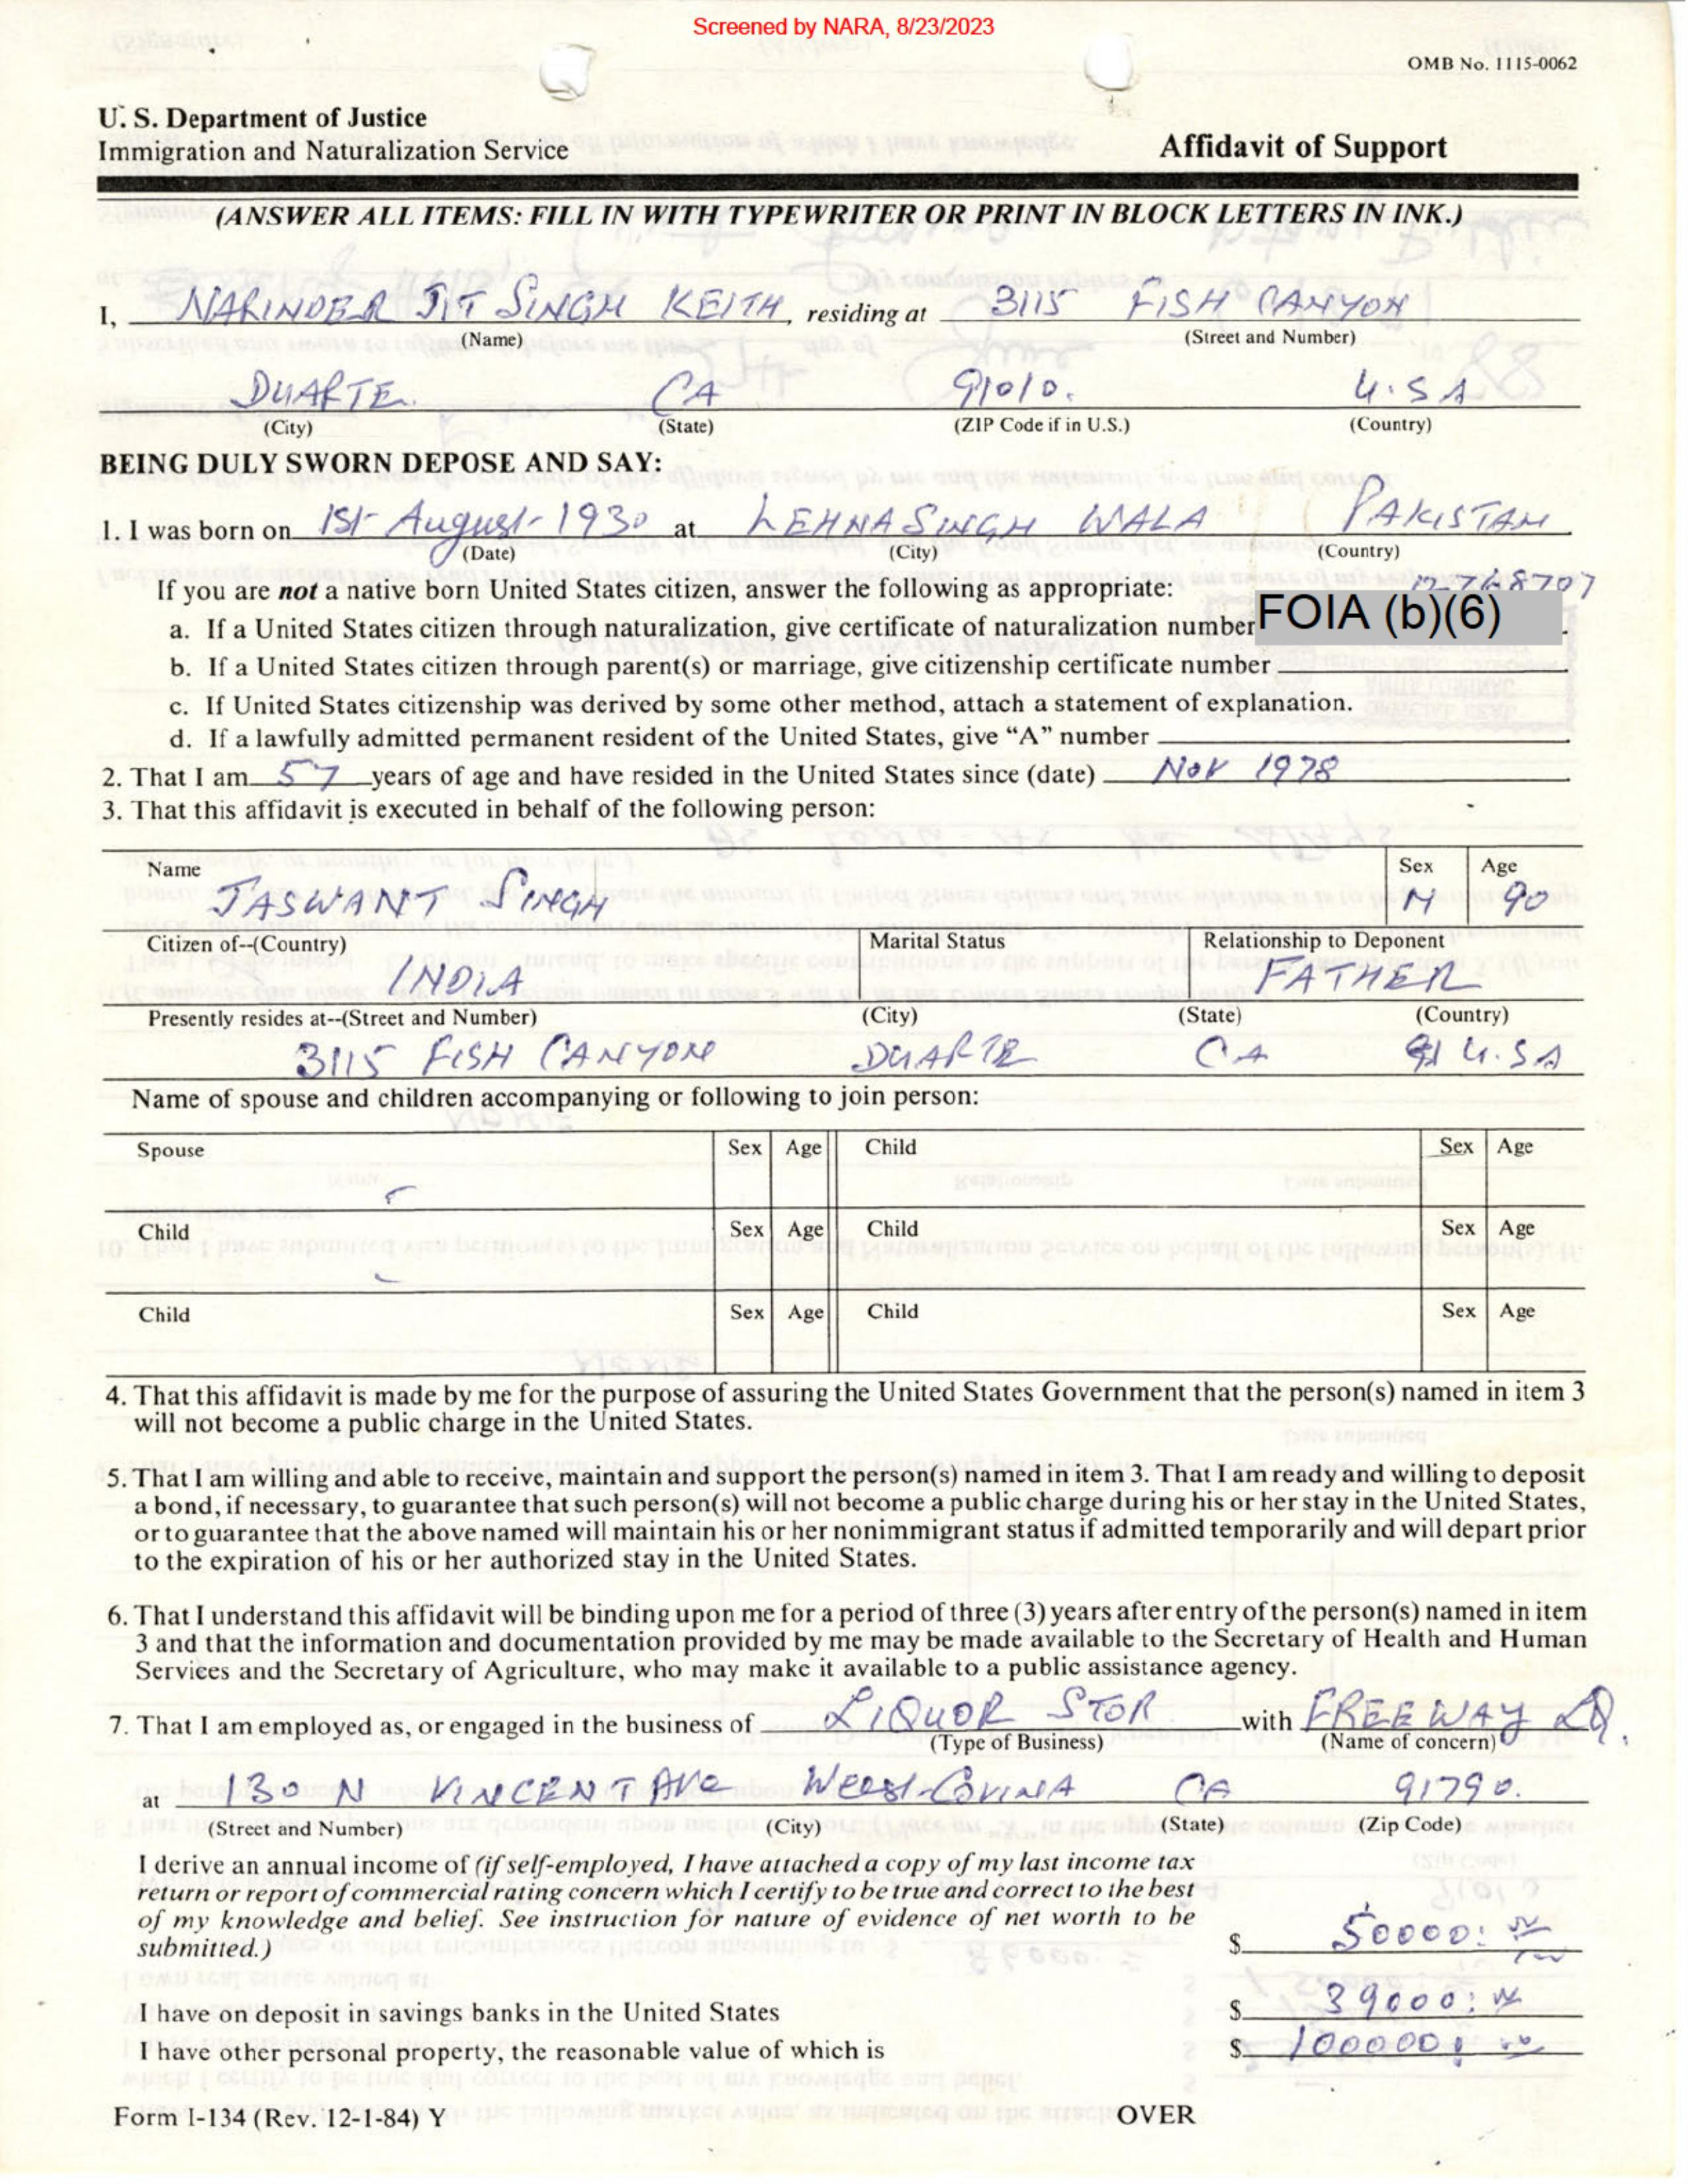 Screened by NARA, 8/23/2023
OMB No. 1115-0062
U. S. Department of Justice
Immigration and Naturalization Service
Affidavit of Support
(ANSWER ALL ITEMS: FILL IN WITH TYPEWRITER OR PRINT IN BLOCK LETTERS IN INK.)
I, NARINDER JIT SINGH KEITH, residing at 3115 FISH CANYON
(Name) (Street and Number)
DUARTE CA 91010. U.S A
(City) (State) (ZIP Code if in U.S.) (Country)
BEING DULY SWORN DEPOSE AND SAY:
1. I was born on 1St August-1930 at LEHNA SINGH WALA PAKISTAN
(Date) (City) (Country)
If you are not a native born United States citizen, answer the following as appropriate:
a. If a United States citizen through naturalization, give certificate of naturalization number FOIA (b)(6)
b. If a United States citizen through parent(s) or marriage, give citizenship certificate number
c. If United States citizenship was derived by some other method, attach a statement of explanation.
d. If a lawfully admitted permanent resident of the United States, give “A” number
2. That I am 57 years of age and have resided in the United States since (date) NOV 1978
3. That this affidavit is executed in behalf of the following person:
Name Sex Age
JASWANT SINGH M 90
Citizen of--(Country) Marital Status Relationship to Deponent
INDIA FATHER
Presently resides at--(Street and Number) (City) (State) (Country)
3115 FISH CANYON DUARTE CA U.SA
Name of spouse and children accompanying or following to join person:
Spouse Sex Age Child Sex Age
Child Sex Age Child Sex Age
Child Sex Age Child Sex Age
4. That this affidavit is made by me for the purpose of assuring the United States Government that the person(s) named in item 3
will not become a public charge in the United States.
5. That I am willing and able to receive, maintain and support the person(s) named in item 3. That I am ready and willing to deposit
a bond, if necessary, to guarantee that such person(s) will not become a public charge during his or her stay in the United States,
or to guarantee that the above named will maintain his or her nonimmigrant status if admitted temporarily and will depart prior
to the expiration of his or her authorized stay in the United States.
6. That I understand this affidavit will be binding upon me for a period of three (3) years after entry of the person(s) named in item
3 and that the information and documentation provided by me may be made available to the Secretary of Health and Human
Services and the Secretary of Agriculture, who may make it available to a public assistance agency.
7. That I am employed as, or engaged in the business of LIQUOR STOR with FREEWAY LQ.
(Type of Business) (Name of concern)
at 130 N VINCENT AVe West-COVINA CA 91790.
(Street and Number) (City) (State) (Zip Code)
I derive an annual income of (if self-employed, I have attached a copy of my last income tax
return or report of commercial rating concern which I certify to be true and correct to the best
of my knowledge and belief. See instruction for nature of evidence of net worth to be
submitted.) $ 50000:
I have on deposit in savings banks in the United States $ 39000:
I have other personal property, the reasonable value of which is $ 100000:
Form I-134 (Rev. 12-1-84) Y OVER